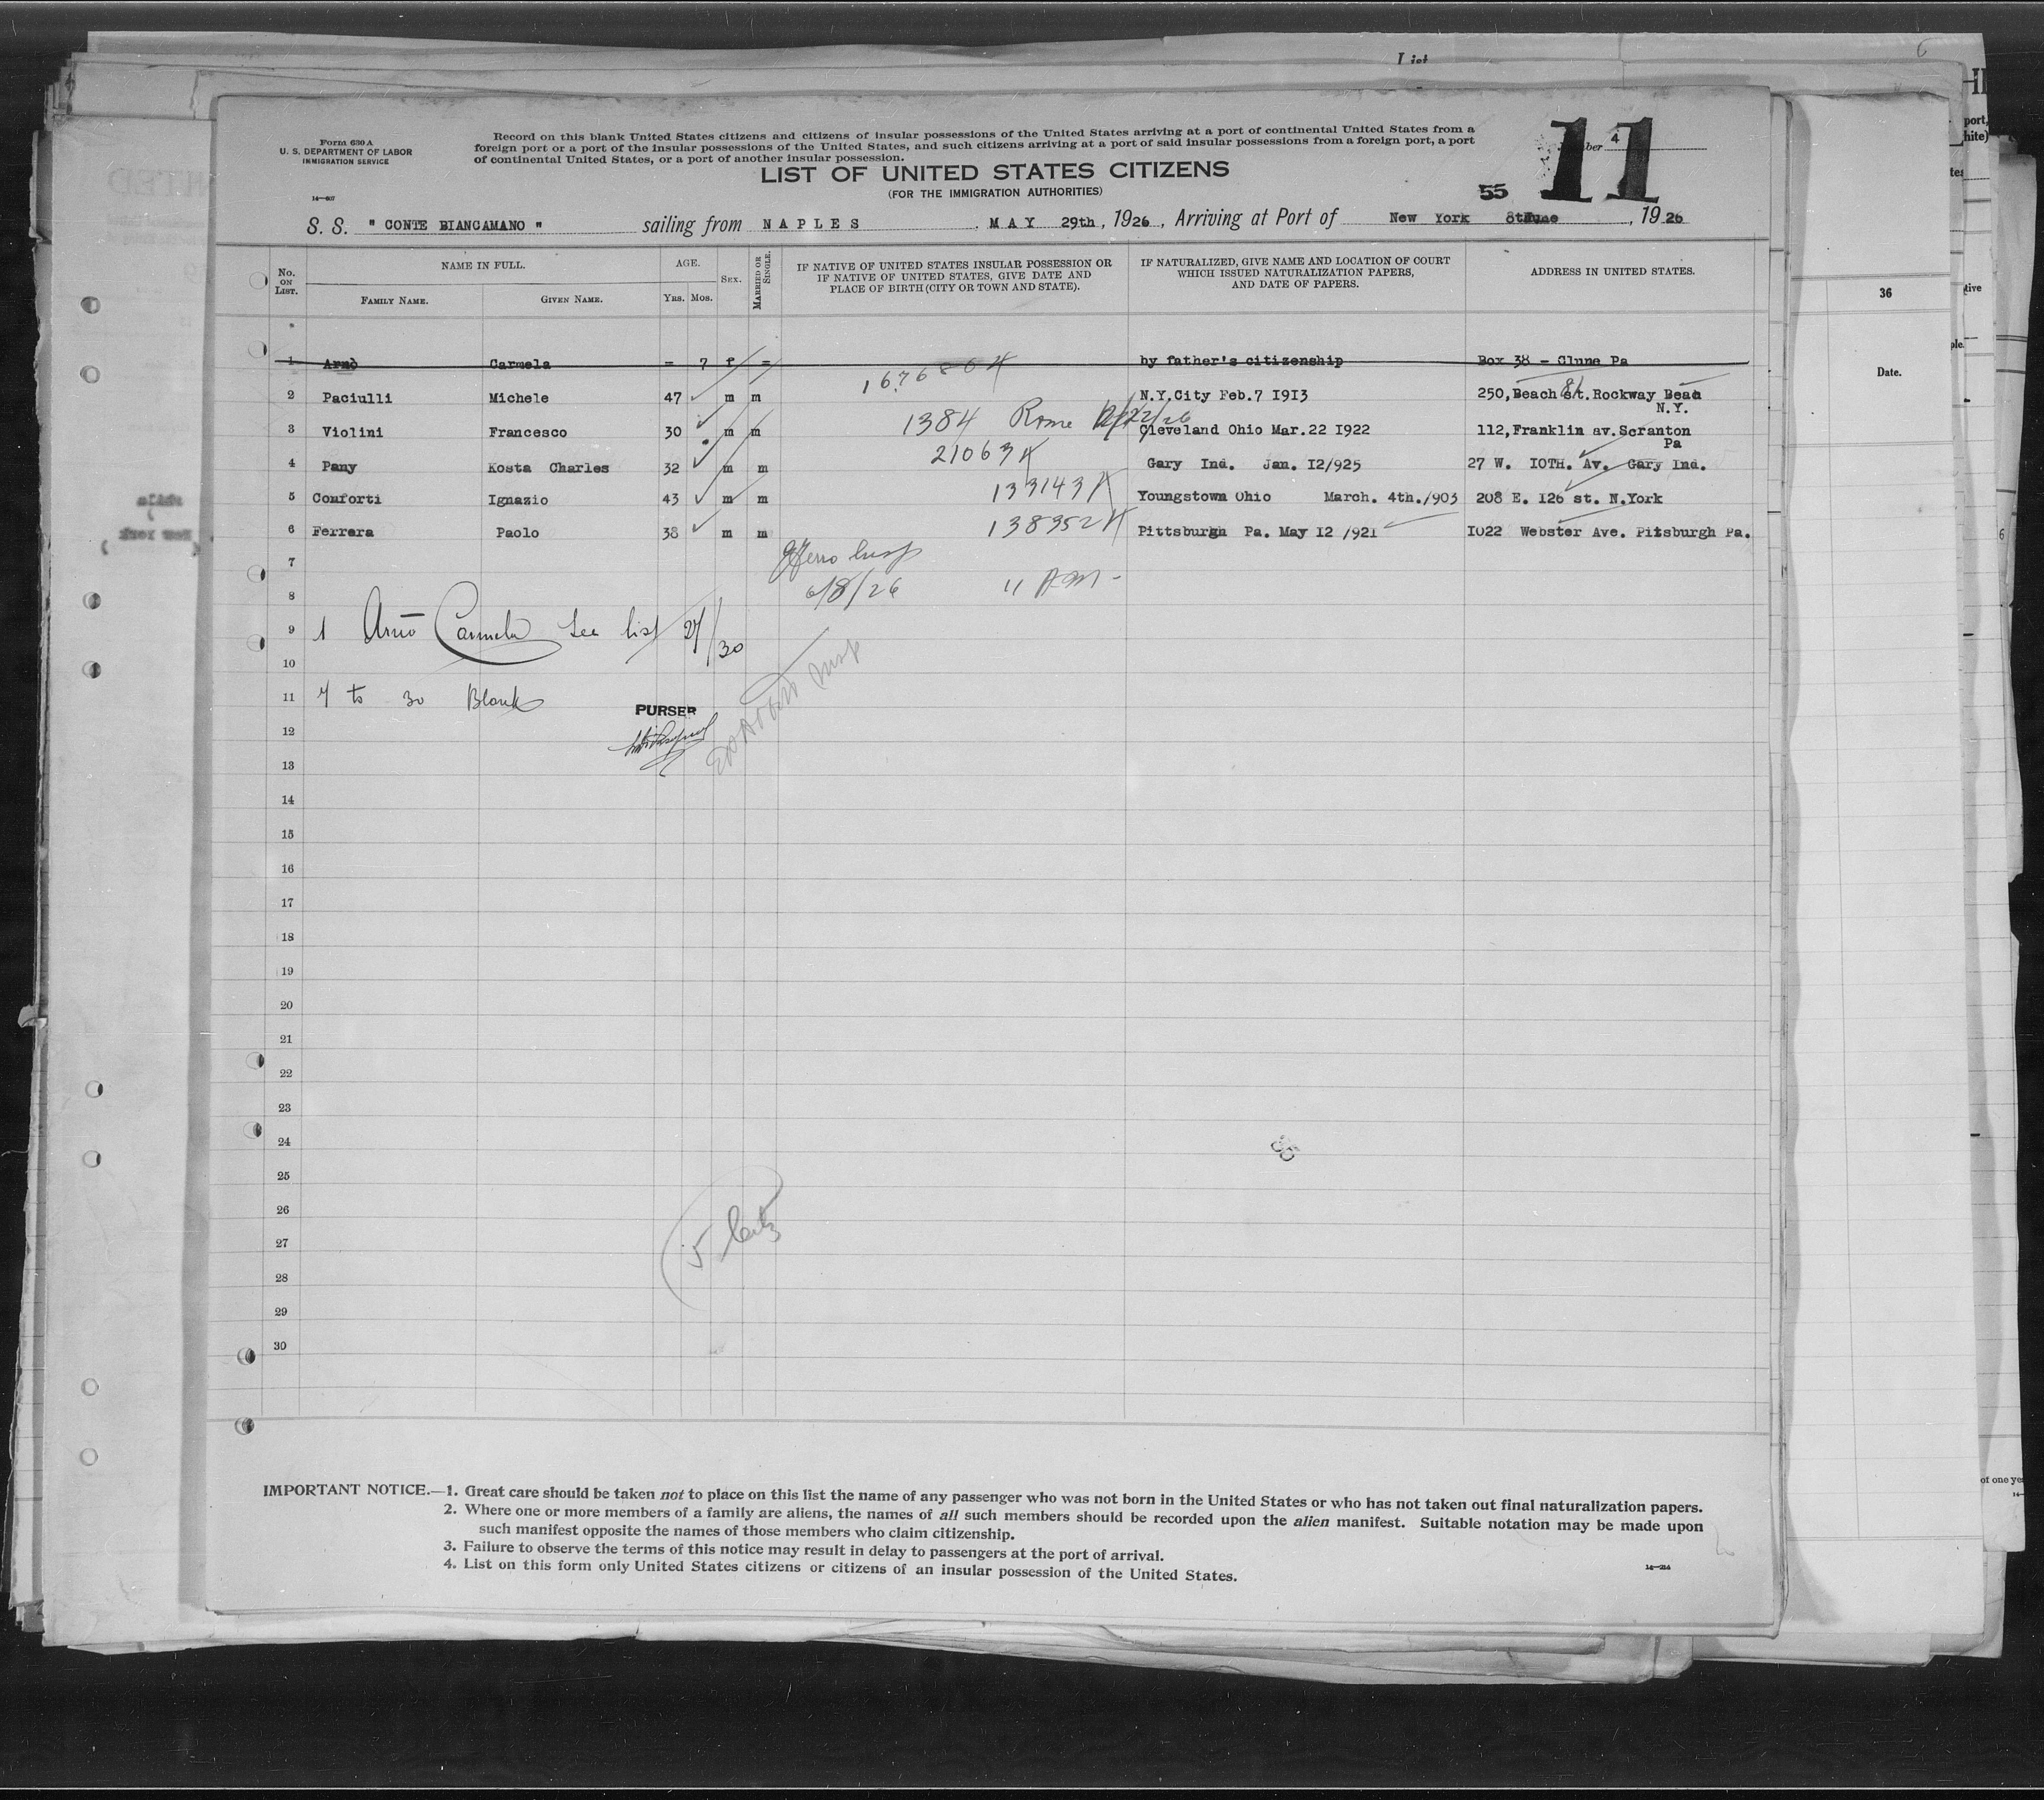 List
Form 630 A
U. S. DEPARTMENT OF LABOR
IMMIGRATION SERVICE
14—607
Record on this blank United States citizens and citizens of insular possessions of the United States arriving at a port of continental United States from a
foreign port or a port of the insular possessions of the United States, and such citizens arriving at a port of said insular possessions from a foreign port, a port
of continental United States, or a port of another insular possession.
LIST OF UNITED STATES CITIZENS
(FOR THE IMMIGRATION AUTHORITIES)
4
11
55
S. S. " CONTE BIANCAMANO " sailing from NAPLES , MAY 29th , 1926 , Arriving at Port of New York 8th June , 1926
No. ON LIST.
NAME IN FULL.
FAMILY NAME. GIVEN NAME.
AGE.
YRS. MOS.
SEX.
MARRIED OR SINGLE.
IF NATIVE OF UNITED STATES INSULAR POSSESSION OR
IF NATIVE OF UNITED STATES, GIVE DATE AND
PLACE OF BIRTH (CITY OR TOWN AND STATE).
IF NATURALIZED, GIVE NAME AND LOCATION OF COURT
WHICH ISSUED NATURALIZATION PAPERS,
AND DATE OF PAPERS.
ADDRESS IN UNITED STATES.
1 Arnò Carmela = 7 f = by father's citizenship Box 38 - Clune Pa
2 Paciulli Michele 47 m m N.Y.City Feb.7 1913 250,Beach 86 st.Rockway Beac
N.Y.
3 Violini Francesco 30 m m 1384 Rome Cleveland Ohio Mar.22 1922 112,Franklin av.Scranton
Pa
4 Pany Kosta Charles 32 m m 21063 Gary Ind. Jan. I2/925 27 W. IOTH. Av. Gary Ind.
5 Comforti Ignazio 43 m m 133143 Youngstown Ohio March. 4th./903 208 E. I26 st. N.York
6 Ferrera Paolo 38 m m 138352 Pittsburgh Pa. May I2 /921 I022 Webster Ave. Pitsburgh Pa.
7
6/8/26 11 AM -
8
9 1 Arnò Carmela See list 27/30
10
11 7 to 30 Blank
PURSER
12
13
14
15
16
17
18
19
20
21
22
23
24
55
25
26
5 Citz
27
28
29
30
IMPORTANT NOTICE.—1. Great care should be taken not to place on this list the name of any passenger who was not born in the United States or who has not taken out final naturalization papers.
2. Where one or more members of a family are aliens, the names of all such members should be recorded upon the alien manifest. Suitable notation may be made upon
such manifest opposite the names of those members who claim citizenship.
3. Failure to observe the terms of this notice may result in delay to passengers at the port of arrival.
4. List on this form only United States citizens or citizens of an insular possession of the United States.
14—214
36
Date.
of one ye